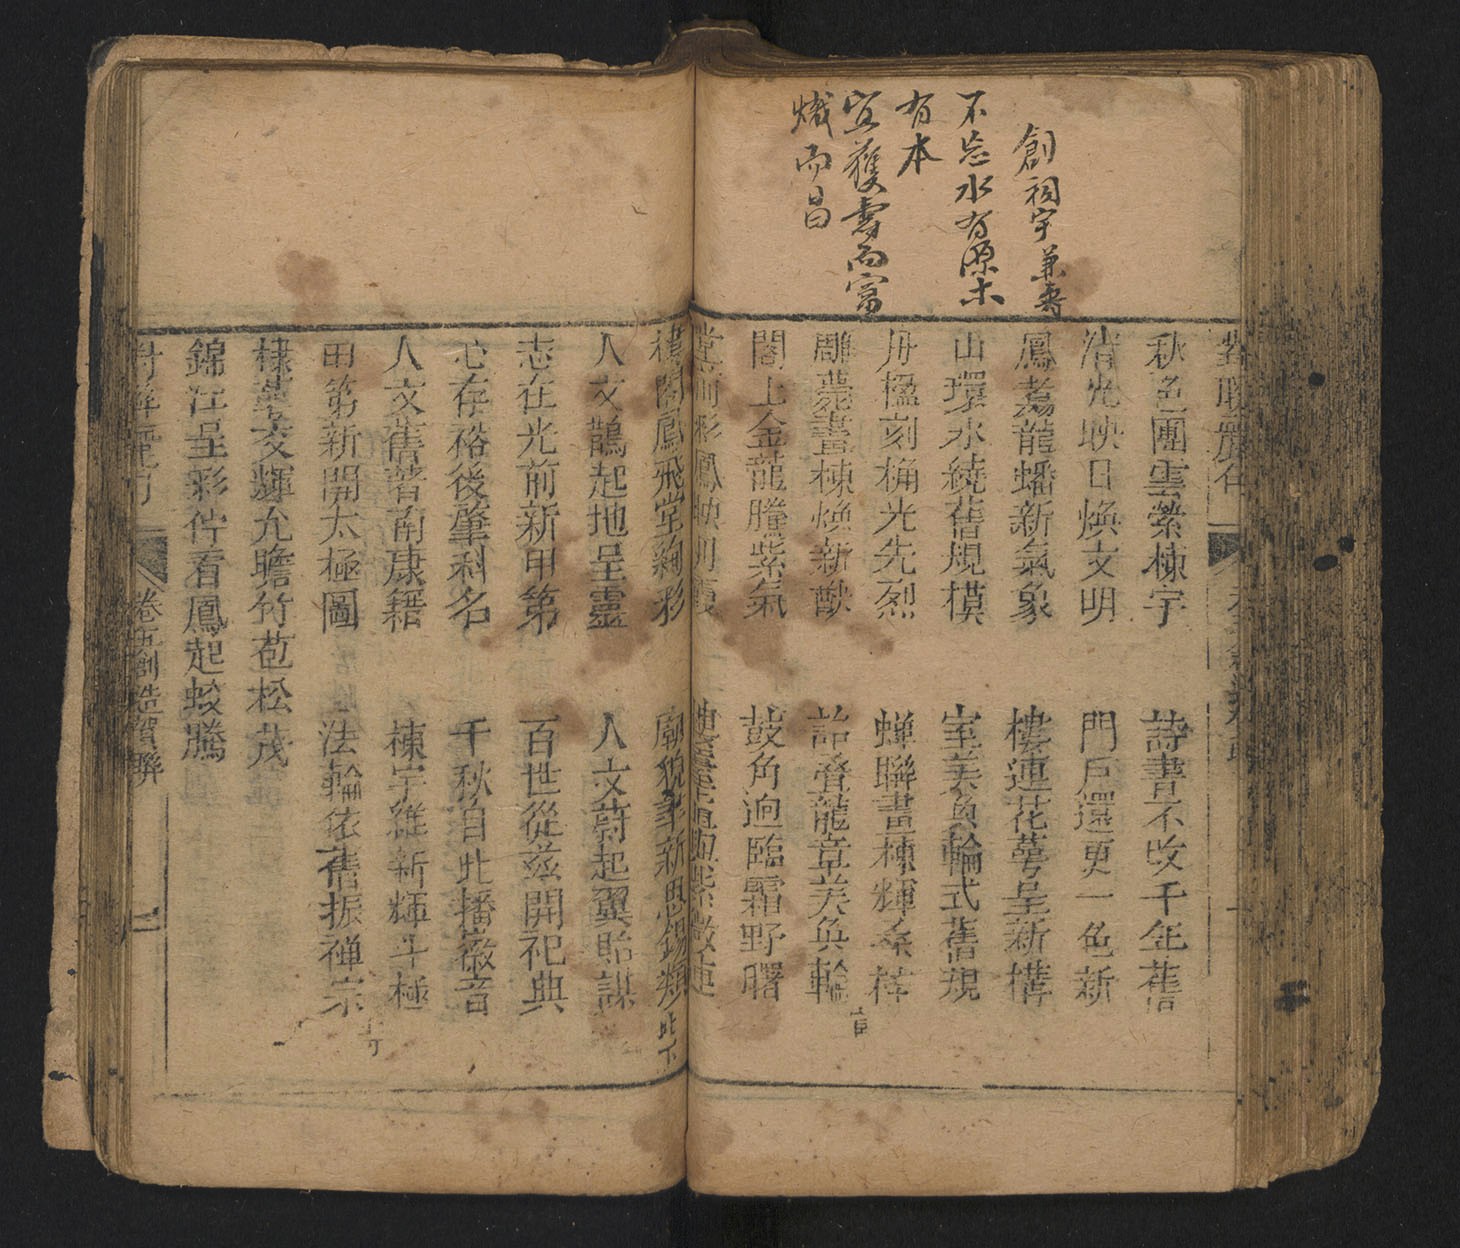 創祠宇兼壽
不忘水有源木
有本
宜獲壽而富
熾而昌
秋色團雲縈棟宇
詩書不改千年舊
清光映日煥文明
門戶還更一色新
鳳翥龍蟠新氣象
樓連花萼呈新構
山環水繞舊規模
室美奐輪式舊規
丹楹刻桷光先烈
蟬聯畫棟輝桑梓
雕甍畫棟煥新猷
詒贊龍章美奐輪
閣上金龍騰紫氣
鼓角迥臨霜野曙
樓閣鳳飛堂絢彩
廟貌聿新思錫類
此下
人文鵲起地呈靈
人文蔚起翼貽謀
志在光前新甲第
百世從茲開祀典
心存裕後肇科名
千秋自此播徽音
人文舊著南康籍
棟宇維新輝斗極
田第新開太極圖
法輪依舊振禪宗
棣萼交輝允瞻竹苞松茂
錦江呈彩佇看鳳起蛟騰
卷五創造賀聯